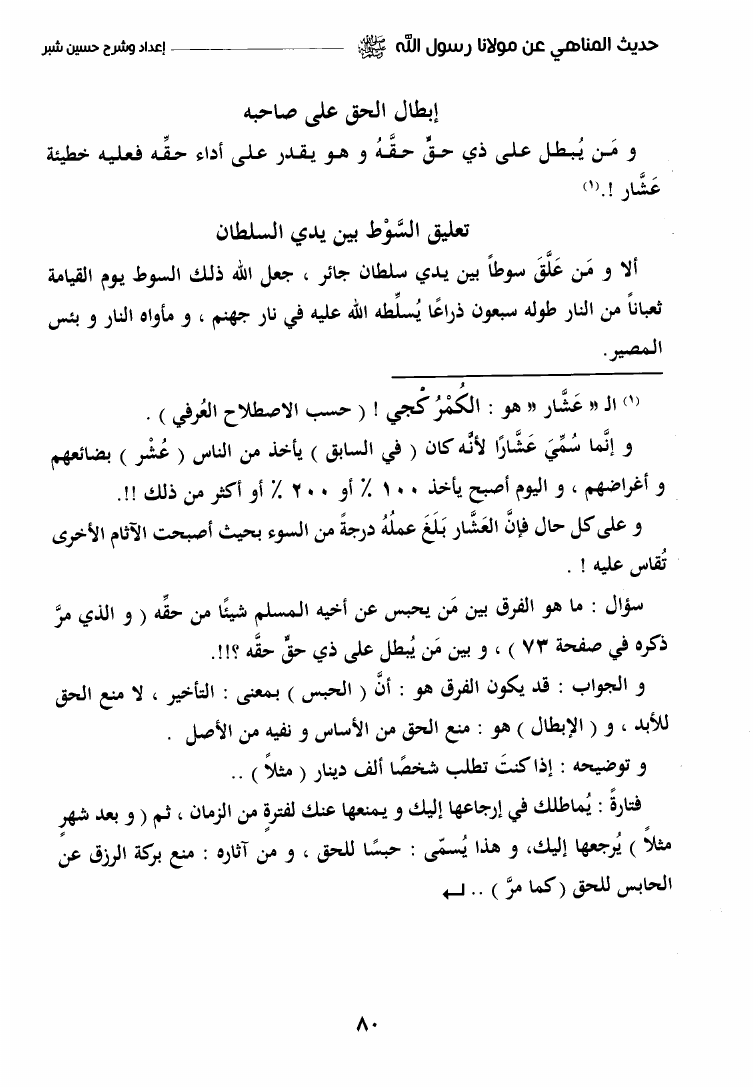 حديث المناهي عن مولانا رسول الله ﷺ ـــــــــــــــــ إعداد وشرح حسين شبر
إبطال الحق على صاحبه
و مَـن يُـبطـل عـلى ذي حـقٍّ حـقَّـهُ و هـو يـقـدر عـلـى أداء حـقِّـه فعليـه خطيئة
عَشَّار !.(١)
تعليق السَّوْط بين يدي السلطان
ألا و مَـن عَلَّقَ سوطاً بين يـدي سلطان جائر ، جعل الله ذلـك السوط يوم القيامة
ثعباناً من النار طوله سبعون ذراعًا يُسلِّطه الله عليه في نار جهنم ، و مأواه النار و بئس
المصير.
(١) الـ « عَشَّار » هو : الكُمْرُكْجي ! ( حسب الاصطلاح العُرفي ) .
و إنَّما سُمِّيَ عَشَّارًا لأنَّه كان ( في السابق ) يأخذ من الناس ( عُشْر ) بضائعهم
و أغراضهم ، و اليوم أصبح يأخذ ١٠٠ ٪ أو ٢٠٠ ٪ أو أكثر من ذلك !!.
و على كل حال فإنَّ العَشَّار بَلَغَ عملُهُ درجةً من السوء بحيث أصبحت الآثام الأخرى
تُقاس عليه ! .
سؤال : ما هو الفرق بين مَن يحبس عن أخيه المسلم شيئًا من حقِّه ( و الذي مرَّ
ذكره في صفحة ٧٣ ) ، و بين مَن يُبطل على ذي حقٍّ حقَّه ؟!!.
و الجواب : قد يكون الفرق هو : أنَّ ( الحبس ) بمعنى : التأخير ، لا منع الحق
للأبد ، و ( الإبطال ) هو : منع الحق من الأساس و نفيه من الأصل .
و توضيحه : إذا كنتَ تطلب شخصًا ألف دينار ( مثلاً ) ..
فتارةً : يُماطلك في إرجاعها إليك و يمنعها عنك لفترةٍ من الزمان ، ثم ( و بعد شهرٍ
مثلاً ) يُرجعها إليك، و هذا يُسمّى : حبسًا للحق ، و من آثاره : منع بركة الرزق عن
الحابس للحق ( كما مرَّ ) .. ↵
٨٠